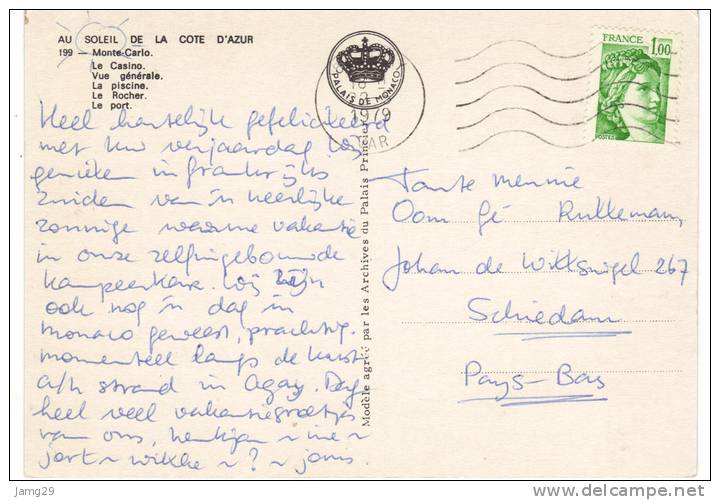 AU SOLEIL DE LA COTE D'AZUR
199 — Monte-Carlo.
Le Casino.
Vue générale.
La piscine.
Le Rocher.
Le port.
Heel hartelijk gefeliciteerd
met uw verjaardag. Wij
genieten in frankrijks
zuiden van 'n heerlijke
zonnige warme vakantie
in onze zelfingebouwde
kampeerkar. Wij zijn
ook nog 'n dag in
monaco geweest, prachtig.
momenteel langs de kust
a/h strand in Agay. Dag
heel veel vakantiegroetjes
van ons,
Modèle agréé par les Archives du Palais Princier
PALAIS DE MONACO
1979
VAR
FRANCE
1,00
POSTES
Tante mennie
Oom Gé Rutteman,
Johan de Wittsingel 267
Schiedam
Pays-Bas
Jamg29
delcampe.net